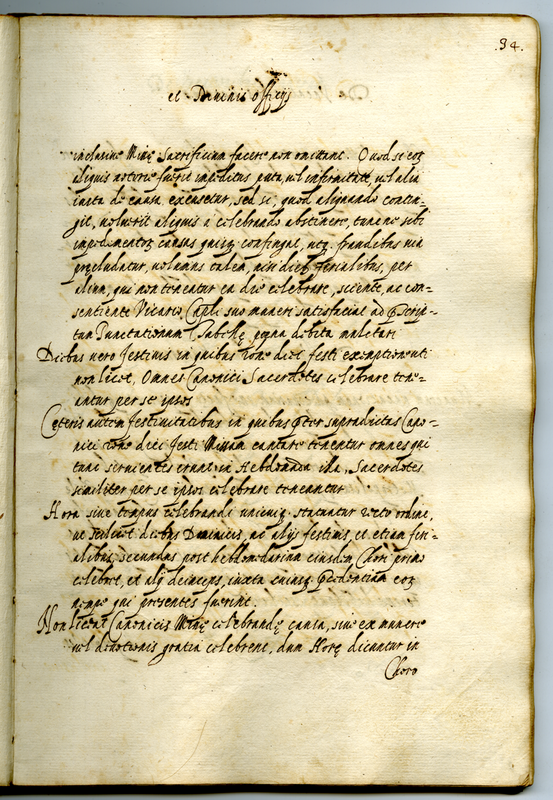 .94.
et Divinis officijs
inclusive Missę Sacrificium facere non omittant. Quod si eoȝ
aliquis notorie fuerit impeditus puta, vel infirmitate, vel alia
iusta de causa, excusetur, sed si, quod aliquando contin-
git, voluerit aliquis à celebrando abstinere, tunc ne sibi
impedimentoȝ causas quisq confingat, utq. fraudibus via
pręcludatur, volumus talem, nisi dieb. ferialibus, per
alium, qui non teneatur ea die celebrare, sciente, ac con-
sentiente Vicario, Capli suo muneri satisfaciat ad pscrip-
tam Punctationum Tabellę, pęna debita mulctari
Diebus vero festivis in quibus rone diei festi exemptione uti
non licet, Omnes Canonici Sacerdotes celebrare tene-
antur per se ipsos
Cęteris autem festivitatibus in quibus pter supradictas Cano-
nici rone diei festi Missam cantare tenentur omnes qui
tunc servientes erunt in Hebdomada illa, Sacerdotes
similiter per se ipsos celebrare teneantur
Hora sive tempus celebrandi unicuiq. statuatur recto ordine,
ut scilicet diebus Dominicis, ac alijs festivis, et etiam feri-
alibus, secundas post hebdomadarium eiusdem Chori primo
celebret, et alij deinceps, iuxta cuiusq. pcedentiam eoȝ
nempe qui presentes fuerint.
Non liceat Canonicis Missę celebrandę causa, sive ex munere
vel devotionis gratia celebrent, dum Horę dicuntur in
Choro